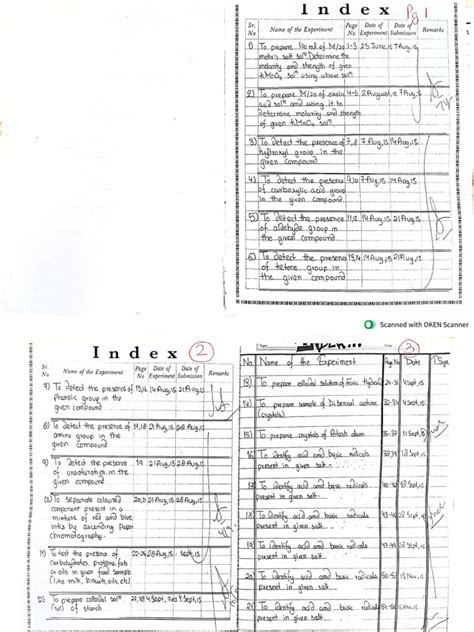 Index Pg 1
Sr. No Name of the Experiment Page No Date of Experiment Date of Submission Remarks
1) To prepare 100 ml of M/20 1-3 25 June,15 7 Aug,15
mohr's salt solⁿ Determine the
molarity and strength of given
KMnO4 solⁿ using above solⁿ
2) To prepare M/20 of oxalic 4-6 2 August,15 7 Aug,15
acid solⁿ and using it to
determine molarity and strength
of given KMnO4 solⁿ.
3) To detect the presence of 7,8 7 Aug,15 14 Aug,15
hydroxyl group in the
given compound
4) To detect the presence 9,10 7 Aug,15 14 Aug,15
of carboxylic acid group
in the given compound
5) To detect the presence 11,12 14 Aug,15 21 Aug,15
of aldehyde group in
the given compound
6) To detect the presence 13,14 14 Aug,15 21 Aug,15
of ketone group in
the given compound
Scanned with OKEN Scanner
Index 2
Sr. No Name of the Experiment Page No Date of Experiment Date of Submission Remarks
7) To detect the presence of 14 Aug,15 21 Aug,15
phenolic group in the
given compound
8) To detect the presence of 17,18 21 Aug,15 28 Aug,15
amino group in the
given compound
9) To detect the presence 19 21 Aug,15 28 Aug,15
of unsaturation in the
given compound
10) To separate coloured 20,21 21 Aug,15 28 Aug,15
component present in a
mixture of red and blue
inks by ascending Paper
Chromatography
11) To test the presence of 22-24 28 Aug,15 Sept,15
Carbohydrates, proteins, fats
or oils in given food sample
(like milk, biscuits, oils etc)
12) To prepare colloidal solⁿ 4 Sept,
(sol) of starch
3
No. Name of the Experiment Page No Date T.Sign.
13) To prepare colloidal solution of Ferric Hydroxide 4 Sept,15
14) To prepare sample of Dibenzal acetone 32-34 4 Sept,15
(crystals)
15) To prepare crystals of Potash alum 35-37 11 Sept,15
16) To identify acid and basic radicals 38,39 18 Sept,15
present in given salt.
17) To identify acid and basic radicals 18 Sept,15
present in given salt.
18) To identify acid and basic radicals
present in given salt.
19) To identify acid and basic radicals
present in given salt.
20) To identify acid and basic radicals Nov,15
present in given salt.
21) To identify acid and basic radicals Nov,15
present in given salt.